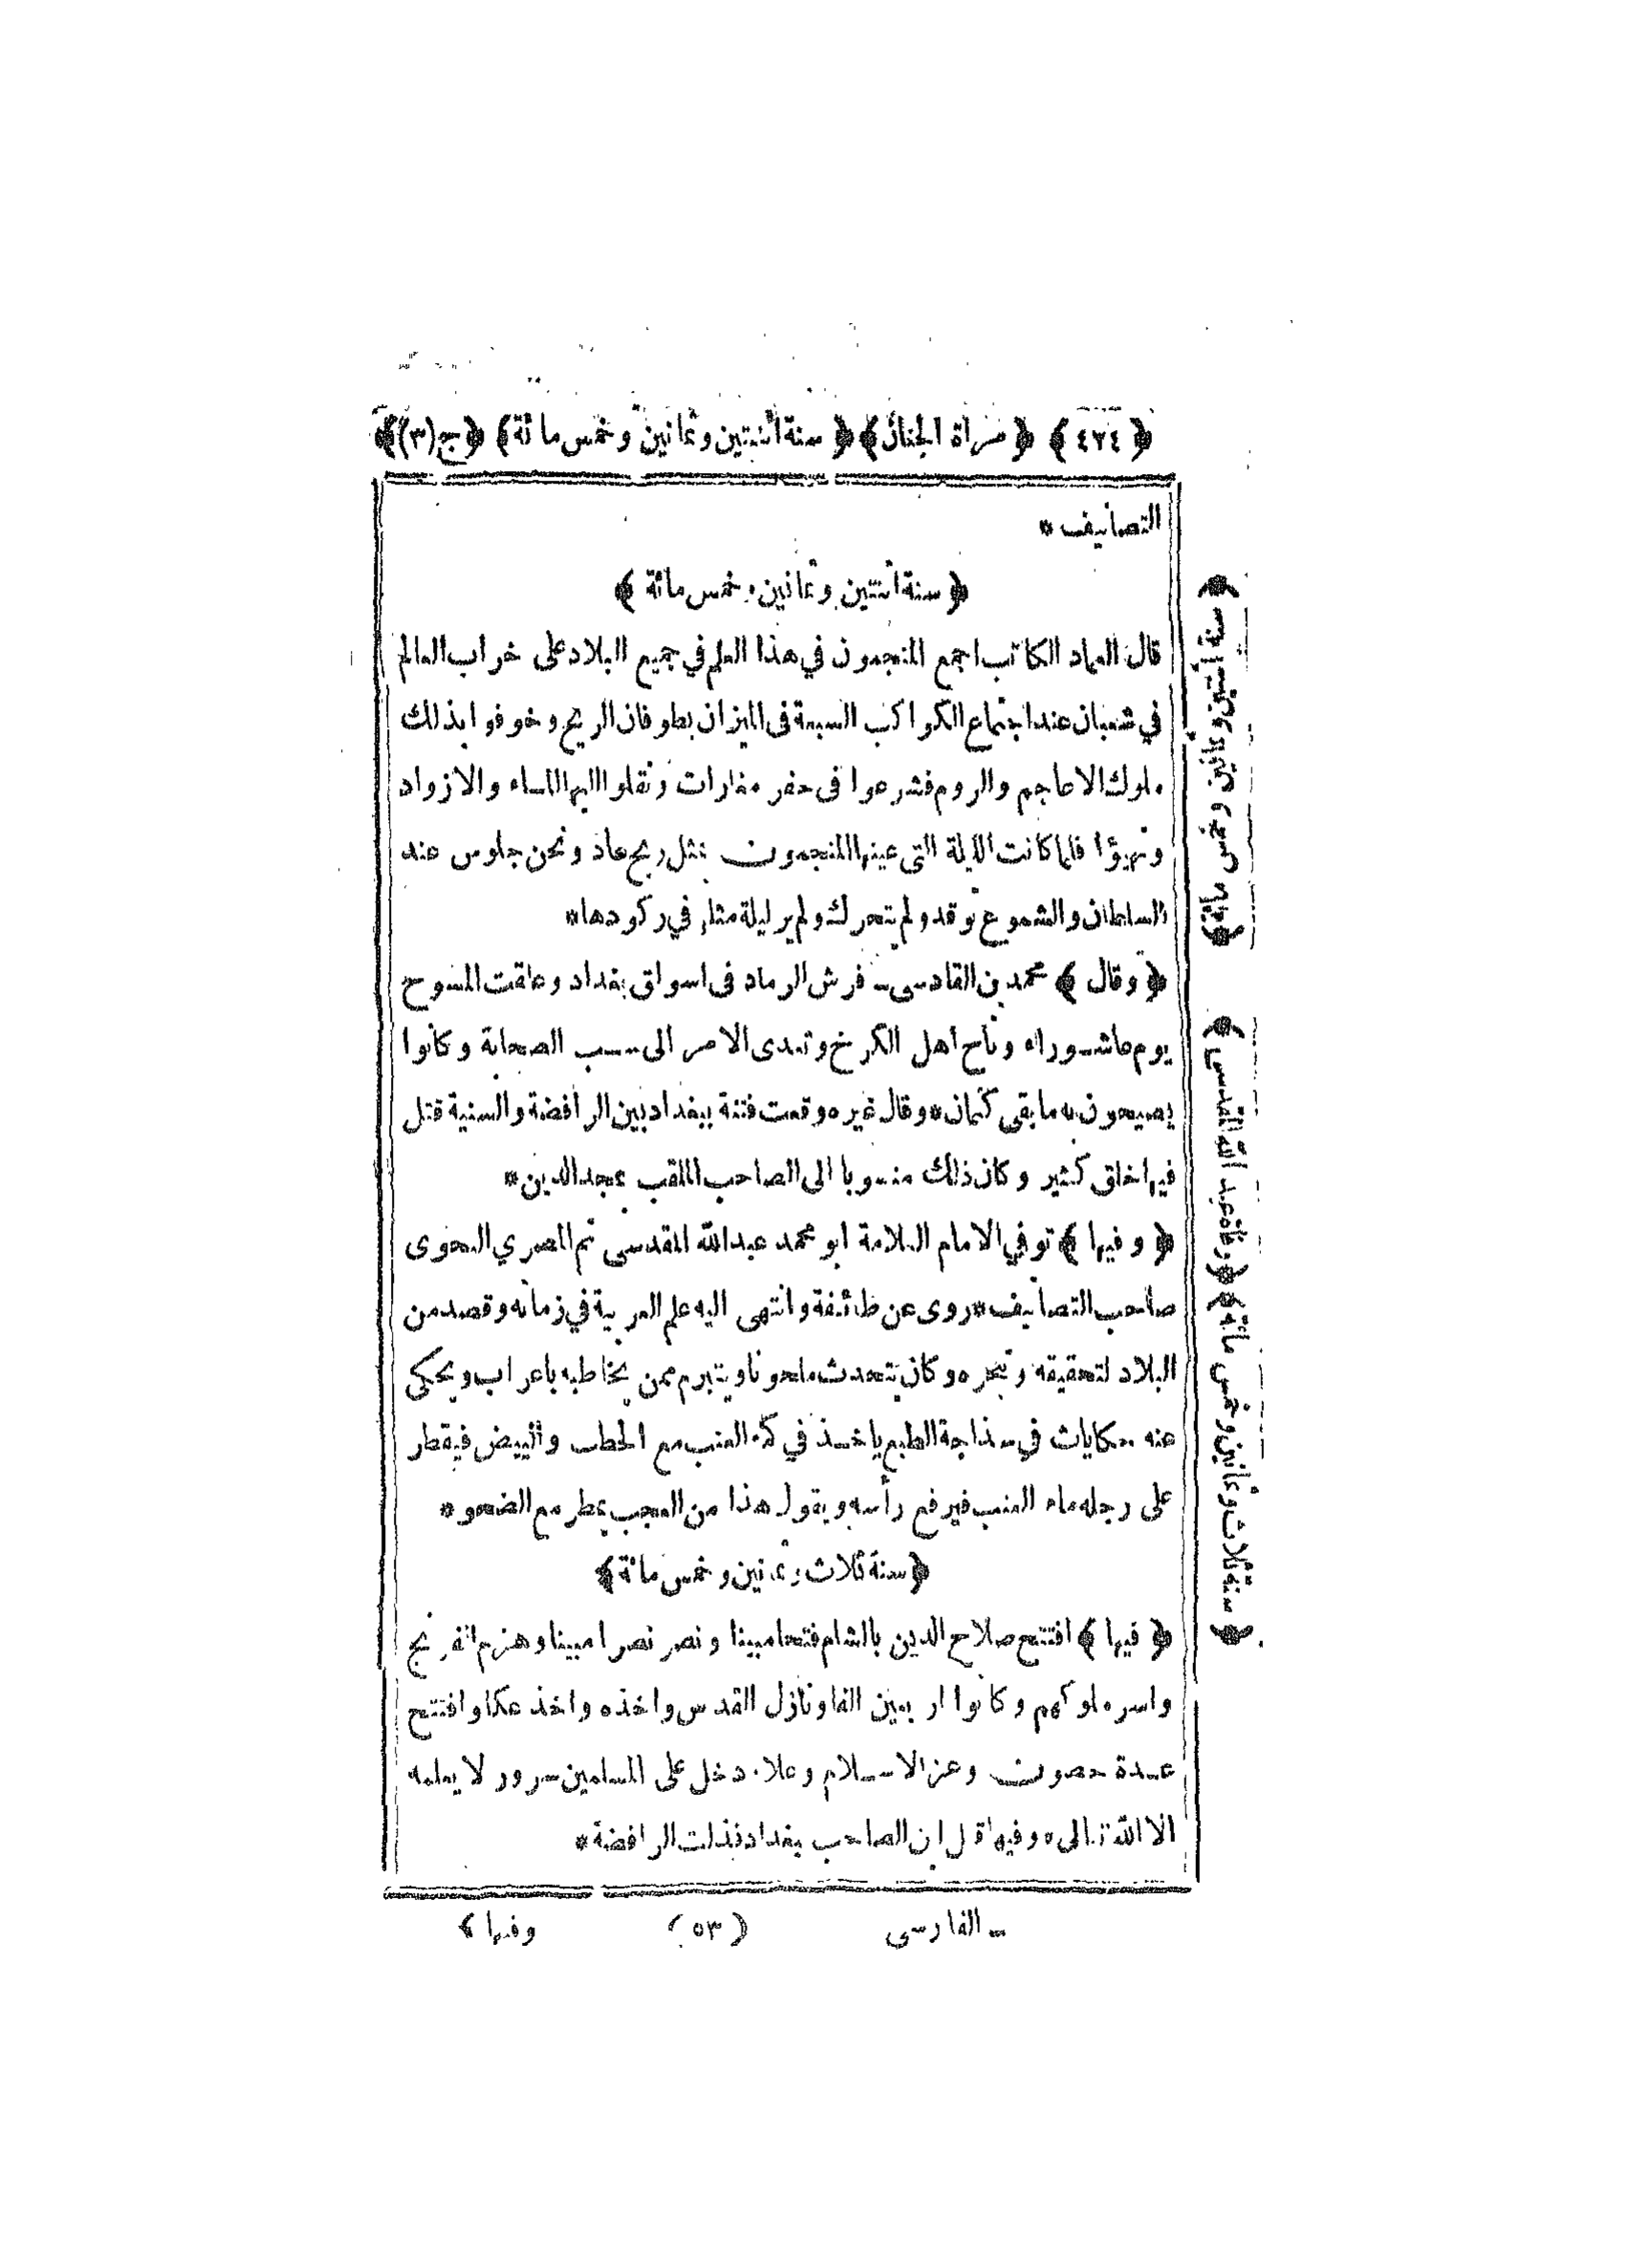 ﴿ ٤٢٤ ﴾ ﴿ مرآة الجنان ﴾ ﴿ سنة اثنتين وثمانين وخمس مائة ﴾ ﴿ ج (٣) ﴾
التصانيف *
﴿ سنة اثنتين وثمانين وخمس مائة ﴾
قال العماد الكاتب اجمع المنجمون في هذا العلم في جميع البلاد على خراب العالم
في شعبان عند اجتماع الكواكب السبعة في الميزان بطوفان الريح وخوفوا بذلك
ملوك الاعاجم والروم فشرعوا في حفر مغارات ونقلوا اليها الماء والازواد
وتهيؤا فلما كانت الليلة التي عينها المنجمون بمثل ريح عاد ونحن جلوس عند
السلطان والشموع توقد ولم تتحرك ولم ير ليلة مثلها في ركودها *
﴿ وقال ﴾ محمد بن القادسي فرش الرماد في اسواق بغداد وعلقت المسوح
يوم عاشوراء وناح اهل الكرخ وتعدى الامر الى سب الصحابة وكانوا
يصيحون به ما بقي كتمان * وقال غيره وقعت فتنة ببغداد بين الرافضة والسنية قتل
فيها خلق كثير وكان ذلك منسوبا الى الصاحب الملقب بمجد الدين *
﴿ وفيها ﴾ توفي الامام العلامة ابو محمد عبد الله المقدسي ثم المصري النحوي
صاحب التصانيف * روى عن طائفة وانتهى اليه علم العربية في زمانه وقصد من
البلاد لتحقيقه وتبحره وكان يتحدث ملحونا ويتبرم ممن يخاطبه باعراب ويحكى
عنه حكايات في سذاجة الطبع ياخذ في كمه العنب مع الحطب والبيض فيقطر
على رجله ماء العنب فيرفع رأسه ويقول هذا من العجب يمطر مع الصحو *
﴿ سنة ثلاث وثمانين وخمس مائة ﴾
﴿ فيها ﴾ افتتح صلاح الدين بالشام فتحا مبينا ونصر نصرا مبينا وهزم الفرنج
واسر ملوكهم وكانوا اربعين الفا ونازل القدس واخذه واخذ عكا وافتتح
عدة حصون وعز الاسلام وعلا دخل على المسلمين سرور لا يعلمه
الا الله تعالى * وفيها قتل ابن الصاحب ببغداد فذلت الرافضة *
الفارسي (٥٣) وفيها ﴾
﴿ سنة اثنتين وثمانين وخمس مائة ﴾
﴿ وفاة عبد الله المقدسي ﴾
﴿ سنة ثلاث وثمانين وخمس مائة ﴾